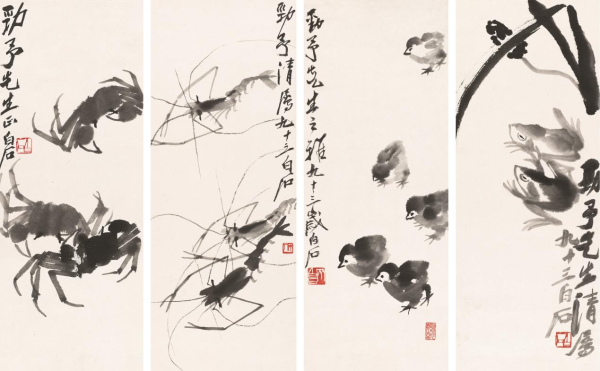 劲予先生正白石
劲予清属九十三白石
劲予先生之雅九十三岁白石
劲予先生清属
九十三白石